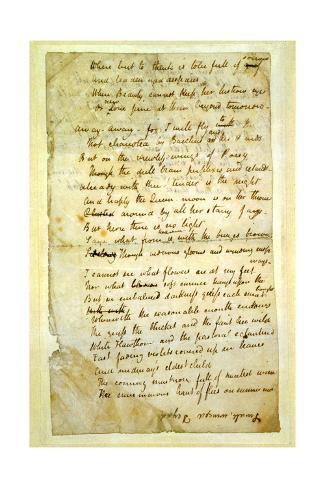 Where but to think is to be full of sorrow
and leaden eyed despairs
Where Beauty cannot keep her lustrous eyes
Or new Love pine at them beyond tomorrow
Away away for I will fly to thee
Not charioted by Bacchus and his Pards
But on the viewless wings of Poesy
Though the dull brain perplexes and retards
Already with thee tender is the night
And haply the Queen moon is on her throne
around by all her starry fays
But here there is no light
Save what from is with the breezes blown
Though verdurous glooms and winding mossy
ways
I cannot see what flowers are at my feet
Nor what incense hangs upon the
boughs
But in embalmed darkness guess each sweet
Wherewith the seasonable month endows
The grass the thicket and the fruit tree wild
White Hawthorn and the pastoral eglantine
Fast fading violets covered up in leaves
And midmays eldest child
The coming muskrose full of sweetest wine
The murmurous haunt of flies on summer eves
Small, winged Dryad